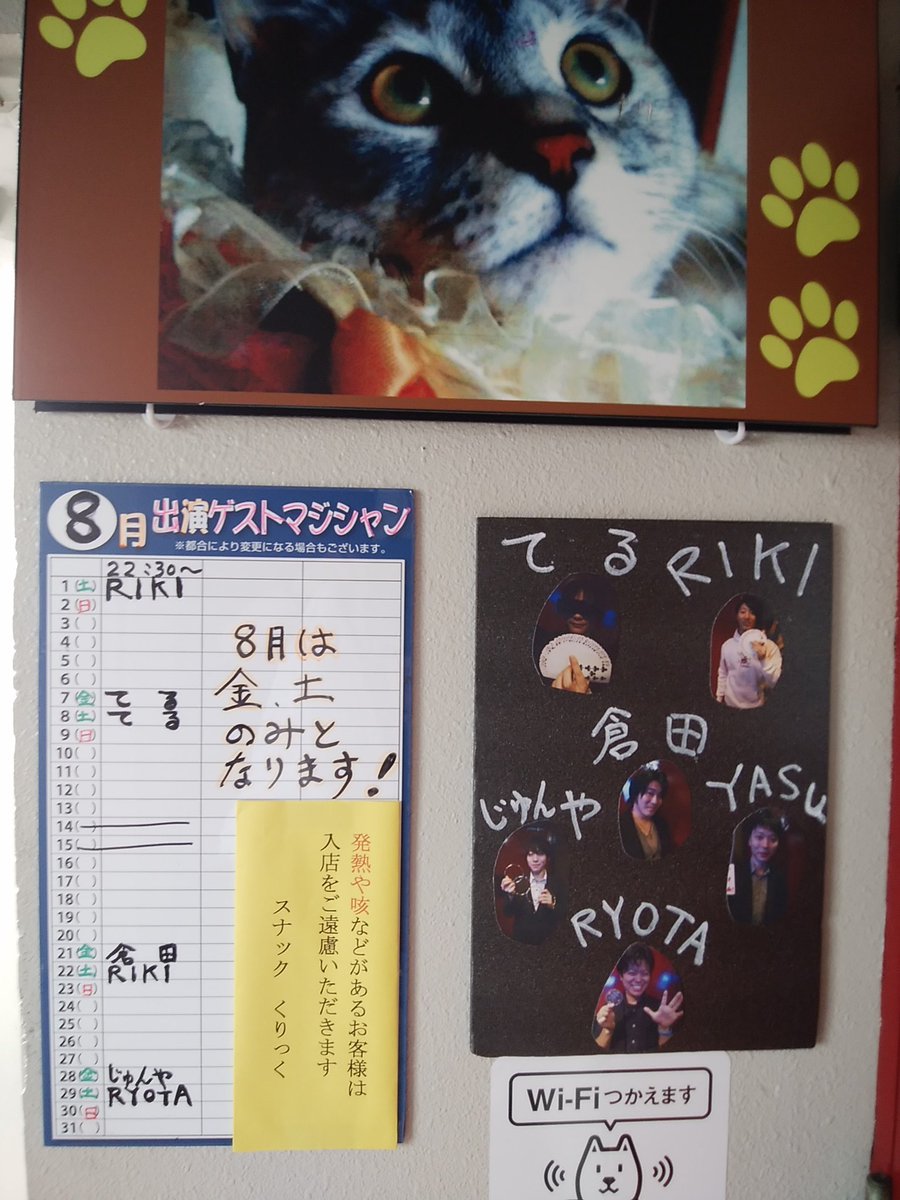 8月 出演ゲストマジシャン
※都合により変更になる場合もございます。
22:30〜
1(土) RIKI
2(日)
3( )
4( )
5( )
6( )
7(金) てる
8(土) てる
9(日)
10( )
11( )
12( )
13( )
14( )
15( )
16( )
17( )
18( )
19( )
20( )
21(金) 倉田
22(土) RIKI
23(日)
24( )
25( )
26( )
27( )
28(金) じゅんや
29(土) RYOTA
30(日)
31( )
8月は
金、土
のみと
なります!
発熱や咳などがあるお客様は
入店をご遠慮いただきます
スナック くりっく
てる
RIKI
倉田
じゅんや
YASU
RYOTA
Wi-Fiつかえます